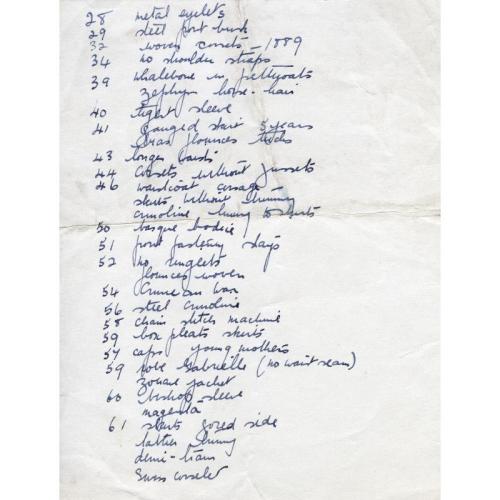 28 metal eyelets
29 steel front busk
32 woven corsets – 1889
34 no shoulder straps
39 whalebone in petticoats
zephyn horse-hair
40 tight sleeve
41 gauged skirt 5 years
flounces tucks
43 longer waists
44 corsets without gussets
46 waistcoat corsage
skirts without
crinoline lining to skirts
50 basque bodice
51 front fastening stays
52 no ringlets
flounces woven
54 Crimean War
56 steel crinoline
58 chain stitch machine
59 box pleats skirts
57 caps young mothers
59 robe Gabrielle (no waist seam)
zouave jacket
60 bishop sleeve
magenta
61 skirts gored side
demi-train
Swiss corselet